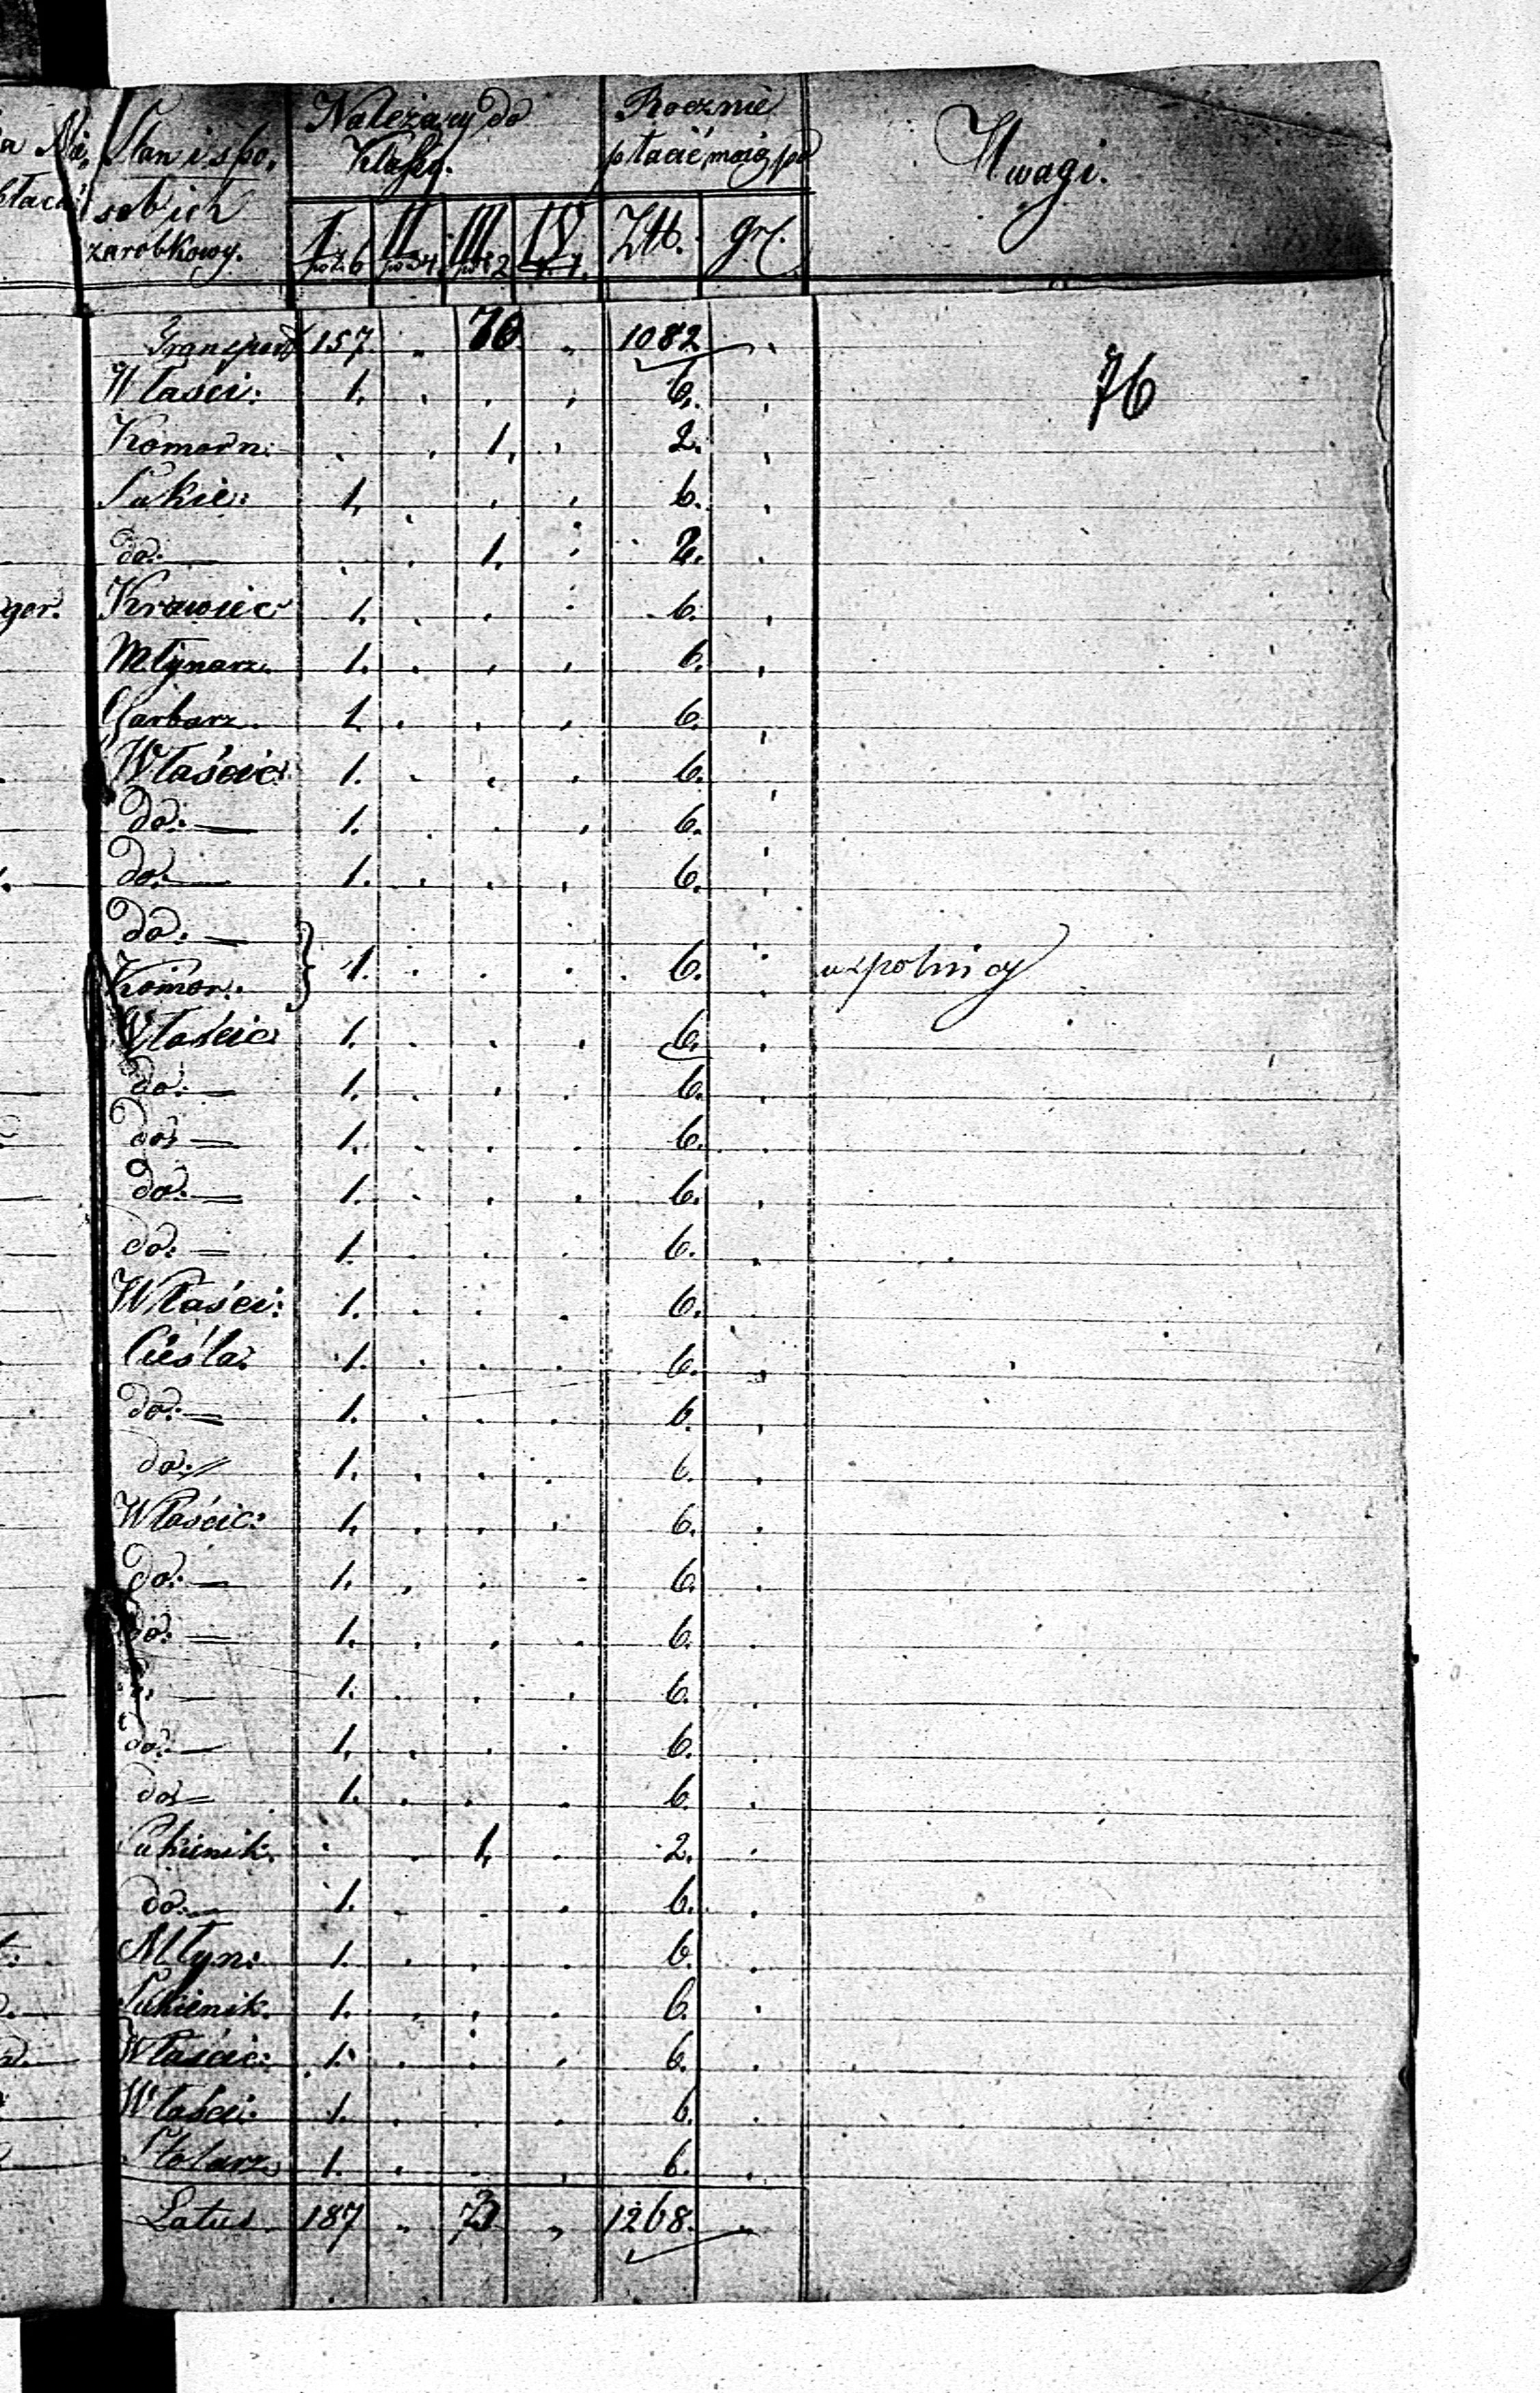 Stan i spo-
sób ich
zarobkowy.
Należący do
Klassy.
I II III IV
Rocznie
płacić mają po
Złt. gr.
Uwagi.
Transport 157 „ 70 „ 1082 „
76
Właści: 1. . . . 6. .
Komorn: . . 1. . 2. .
Sukie: 1. . . . 6. .
do: — . . 1. . 2. .
ger. Krawiec 1. . . . 6. .
Młynarz. 1. . . . 6. .
Garbarz. 1. . . . 6. .
Właścic: 1. . . . 6. .
do: — 1. . . . 6. .
do: — 1. . . . 6. .
do: —
Komor: } 1. . . . 6. . wspólnicy
Właścic: 1. . . . 6. .
do: — 1. . . . 6. .
do: — 1. . . . 6. .
do: — 1. . . . 6. .
do: — 1. . . . 6. .
Właści: 1. . . . 6. .
Cieśla: 1. . . . 6. .
do: — 1. . . . 6. .
do: — 1. . . . 6. .
Właścic: 1. . . . 6. .
do: — 1. . . . 6. .
do: — 1. . . . 6. .
— 1. . . . 6. .
do: — 1. . . . 6. .
do: — 1. . . . 6. .
Sukienik. . . 1. . 2. .
do: — 1. . . . 6. .
Młyn: 1. . . . 6. .
Sukienik. 1. . . . 6. .
Właścic: 1. . . . 6. .
Właści: 1. . . . 6. .
Stolarz 1. . . . 6. .
Latus. 187 „ 73 „ 1268. „